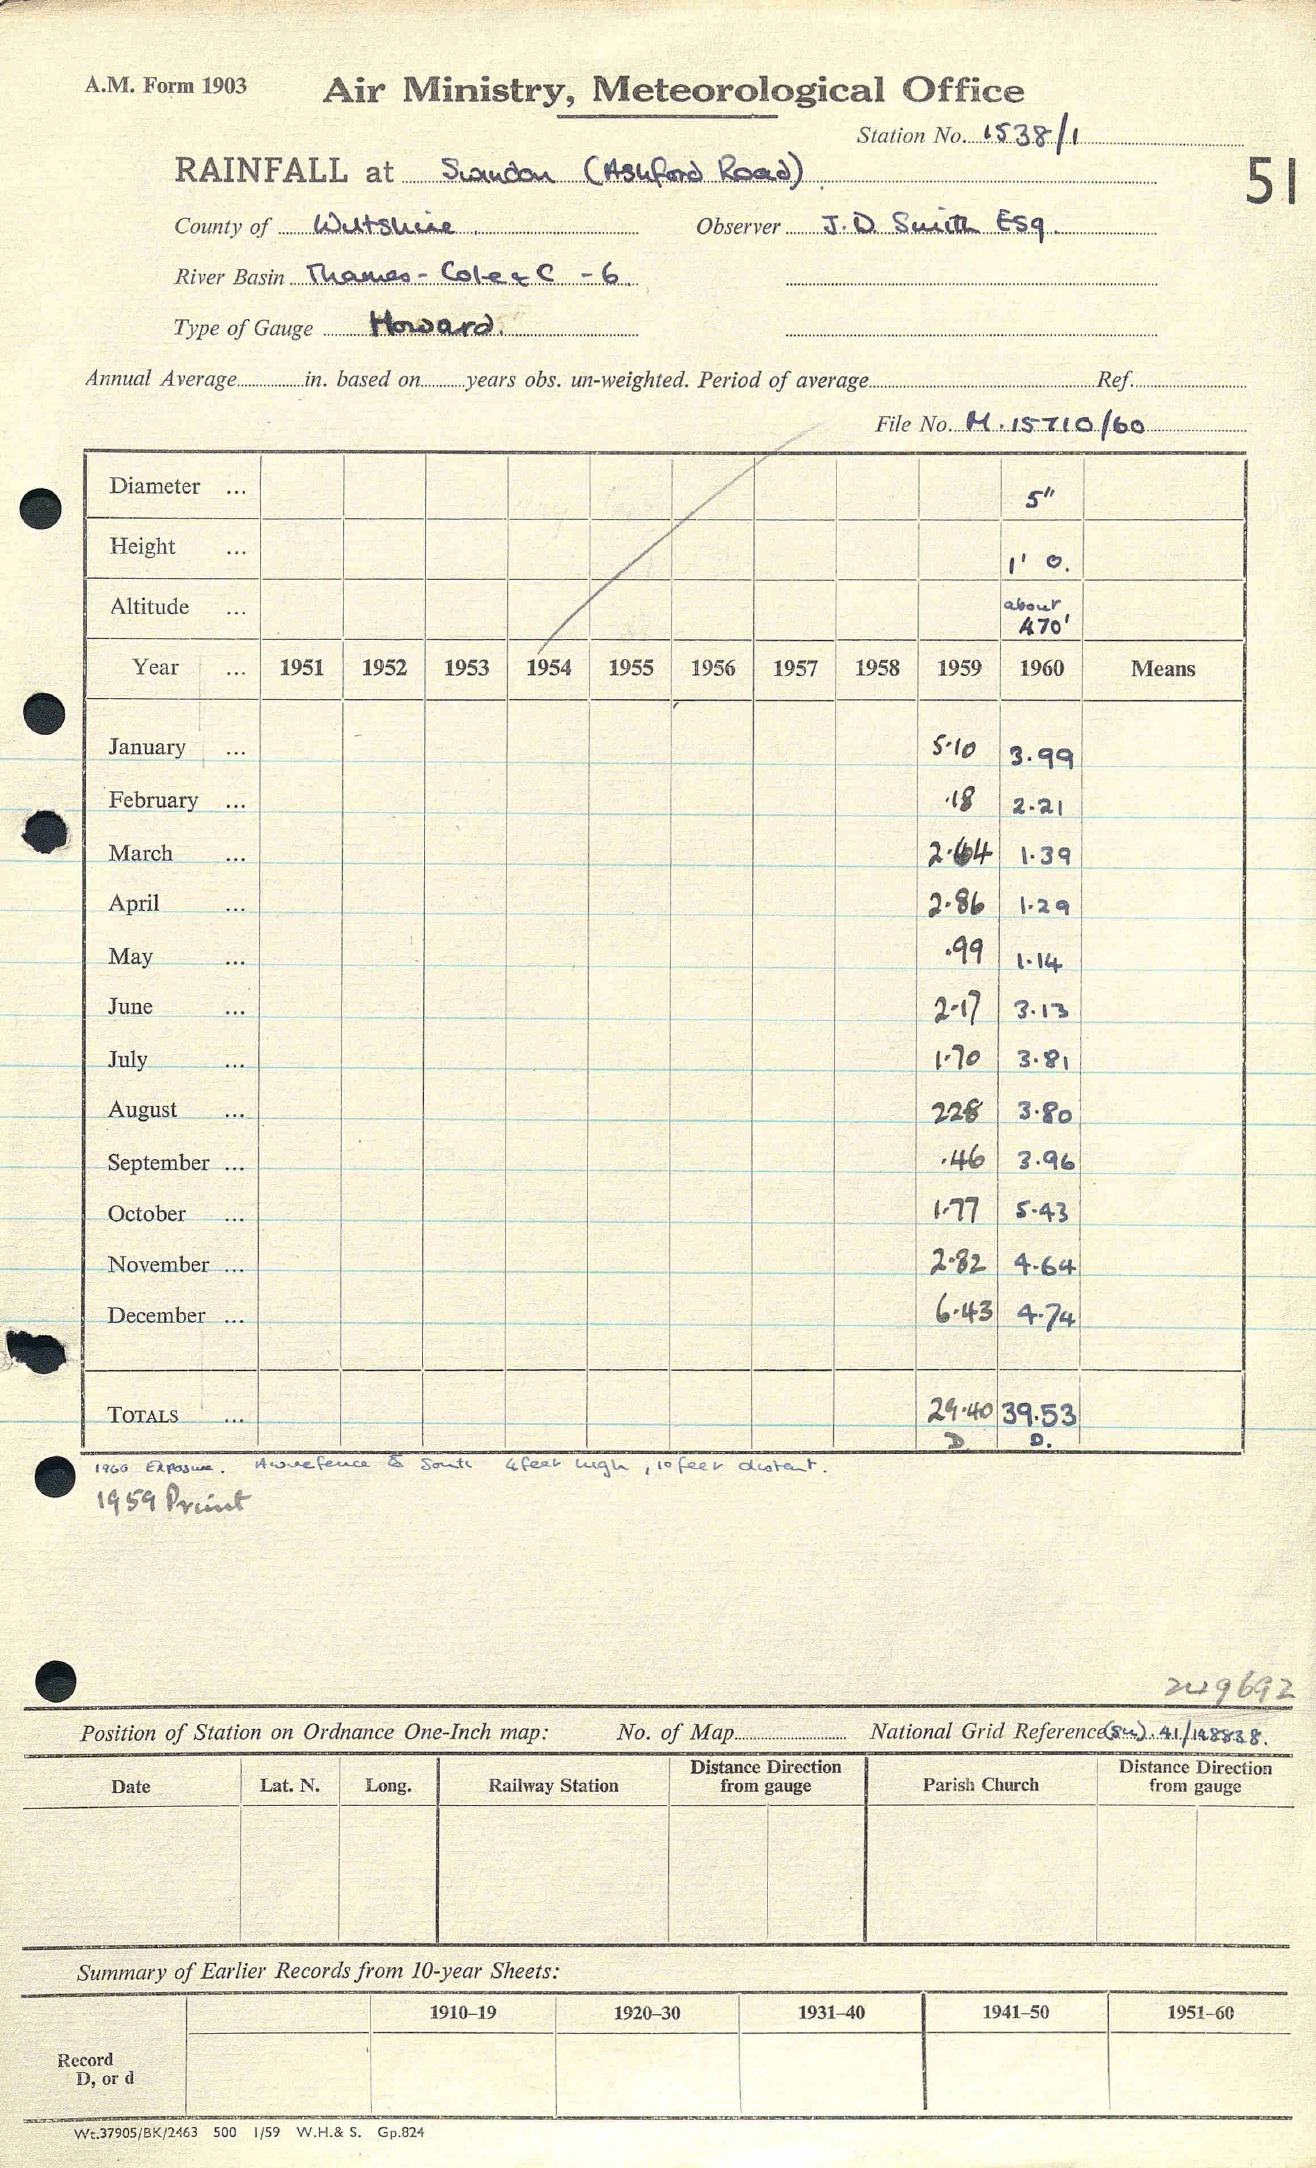 A.M. Form 1903
Air Ministry, Meteorological Office
Station No. 1538/1
RAINFALL at Swindon (Ashford Road)
51
County of Wiltshire Observer J.D. Smith Esq.
River Basin Thames - Cole & C - 6
Type of Gauge Howard.
Annual Average in. based on years obs. un-weighted. Period of average Ref.
File No. M.15710/60
Diameter ... 5"
Height ... 1' 0.
Altitude ... about 470'
Year ... 1951 1952 1953 1954 1955 1956 1957 1958 1959 1960 Means
January ... 5.10 3.99
February ... .18 2.21
March ... 2.64 1.39
April ... 2.86 1.29
May ... .99 1.14
June ... 2.17 3.13
July ... 1.70 3.81
August ... 228 3.80
September ... .46 3.96
October ... 1.77 5.43
November ... 2.82 4.64
December ... 6.43 4.74
TOTALS ... 29.40 39.53
D D.
1960 Exposure. A wire fence to South 4 feet high, 10 feet distant.
1959 Print
Position of Station on Ordnance One-Inch map: No. of Map National Grid Reference (SU). 41/148838.
Date Lat. N. Long. Railway Station Distance Direction from gauge Parish Church Distance Direction from gauge
Summary of Earlier Records from 10-year Sheets:
1910–19 1920–30 1931–40 1941–50 1951–60
Record
D, or d
Wt.37905/BK/2463 500 1/59 W.H.& S. Gp.824